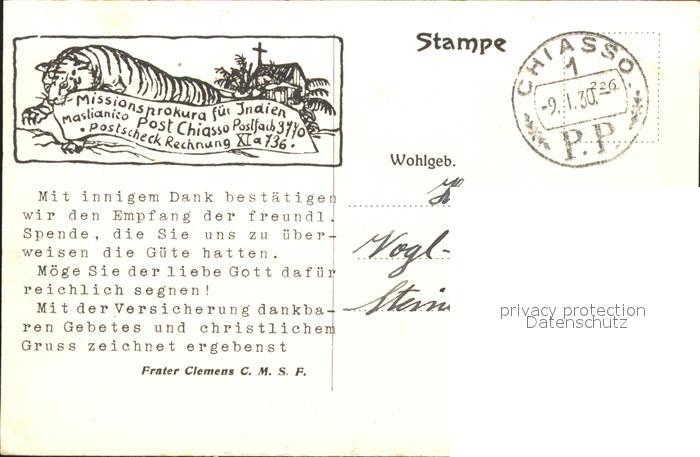 Stampe
CHIASSO
1
-9.I.30.-226
P.P.
Missionsprokura für Indien
Maslianico Post Chiasso Postfach 3770
• Postscheck Rechnung XI a 736 •
Wohlgeb.
Mit innigem Dank bestätigen
wir den Empfang der freundl.
Spende, die Sie uns zu über-
weisen die Güte hatten.
Möge Sie der liebe Gott dafür
reichlich segnen!
Mit der Versicherung dankba-
ren Gebetes und christlichem
Gruss zeichnet ergebenst
Frater Clemens C. M. S. F.
Vogl-
Stein
privacy protection
Datenschutz